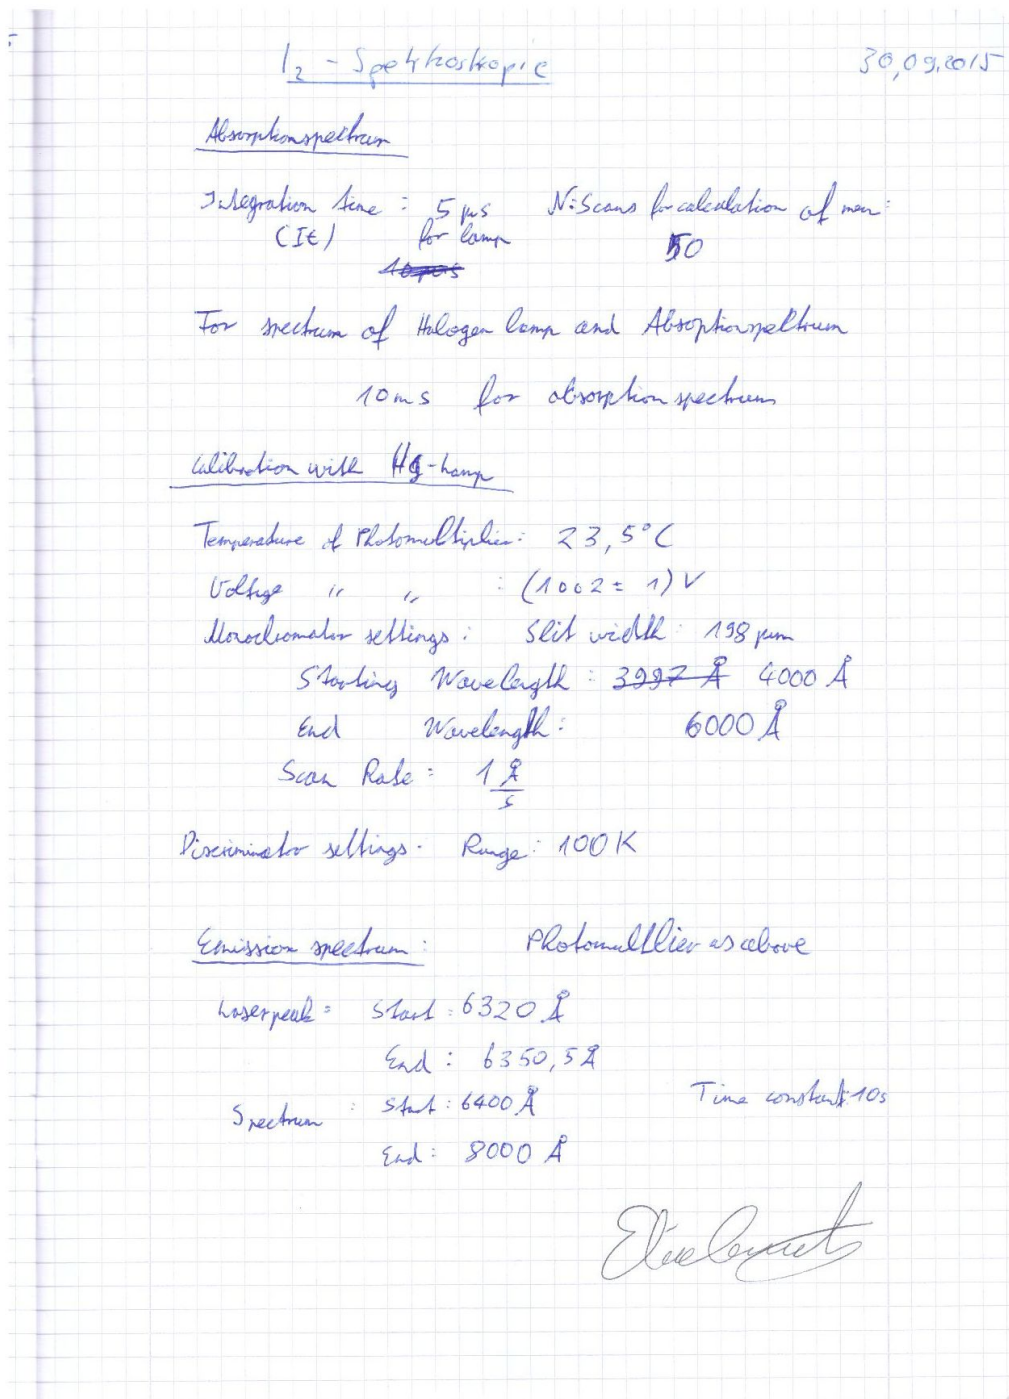 I₂ - Spektroskopie 30,09.2015
Absorptionspektrum
Integration time : 5 µs N: Scans for calculation of mean:
(It) for lamp 50
~~10 µs~~
For spectrum of Halogen lamp and Absoptionspektrum
10 ms for absorption spectrum
Calibration with Hg-Lamp
Temperature of Photomultiplier: 23,5°C
Voltage " " : (1002 ± 1) V
Monochromator settings : Slit width : 198 µm
Starting Wavelength : ~~3997 Å~~ 4000 Å
End Wavelength : 6000 Å
Scan Rate : 1 Å/s
Discriminator settings. Range : 100 K
Emission spectrum : Photomultlier as above
Laserpeak : Start : 6320 Å
End : 6350,5 Å
Spectrum : Start : 6400 Å Time constant: 10s
End : 8000 Å